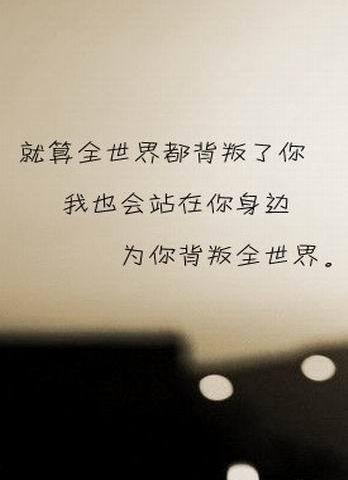 就算全世界都背叛了你
我也会站在你身边
为你背叛全世界。